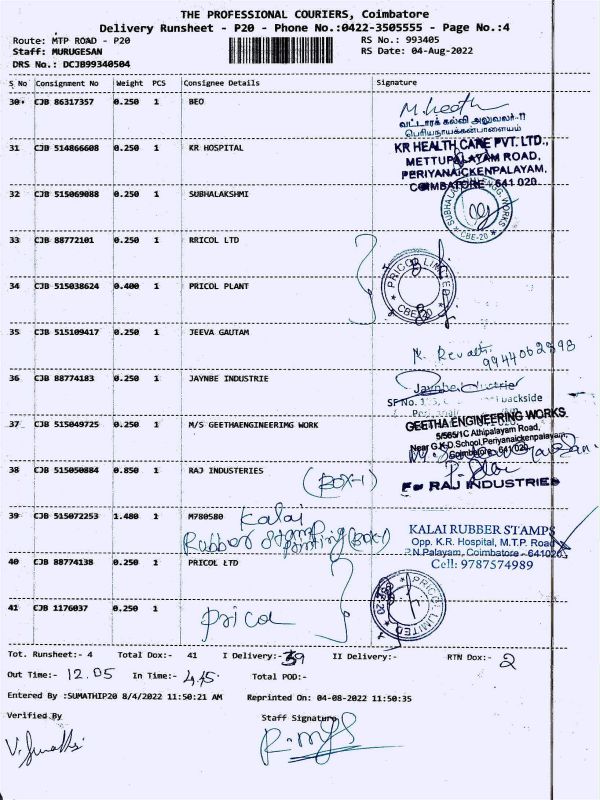 THE PROFESSIONAL COURIERS, Coimbatore
Delivery Runsheet - P20 - Phone No.:0422-3505555 - Page No.:4
Route: MTP ROAD - P20 RS No.: 993405
Staff: MURUGESAN RS Date: 04-Aug-2022
DRS No.: DCJB99340504
S No Consignment No Weight PCS Consignee Details Signature
30 CJB 86317357 0.250 1 BEO
வட்டாரக் கல்வி அலுவலர்-II
பெரியநாயக்கன்பாளையம்
31 CJB 514866608 0.250 1 KR HOSPITAL KR HEALTH CARE PVT. LTD.,
METTUPALAYAM ROAD,
PERIYANAICKENPALAYAM,
COIMBATORE - 641 020.
32 CJB 515069088 0.250 1 SUBHALAKSHMI
CBE-20
33 CJB 88772101 0.250 1 RRICOL LTD
PRICOL LIMITED
CBE-20
34 CJB 515038624 0.400 1 PRICOL PLANT
35 CJB 515109417 0.250 1 JEEVA GAUTAM
K. Revathi
9944062898
36 CJB 88774183 0.250 1 JAYNBE INDUSTRIE
backside
37 CJB 515049725 0.250 1 M/S GEETHAENGINEERIMG WORK GEETHA ENGINEERING WORKS
5/565/1C Athipalayam Road,
Near G.K.D.School,Periyanaickenpalayam,
Coimbatore - 641 020
38 CJB 515050884 0.850 1 RAJ INDUSTERIES (BOX-1)
For RAJ INDUSTRIES
39 CJB 515072253 1.480 1 M780580 Kalai
Rubber Stamp
Printing (BOX-1)
KALAI RUBBER STAMPS
Opp. K.R. Hospital, M.T.P. Road
P.N.Palayam, Coimbatore - 641020
Cell: 9787574989
40 CJB 88774138 0.250 1 PRICOL LTD
PRICOL LIMITED
41 CJB 1176037 0.250 1 Pricol
Tot. Runsheet:- 4 Total Dox:- 41 I Delivery:- 39 II Delivery:- RTN Dox:- 2
Out Time:- 12.05 In Time:- 4.45 Total POD:-
Entered By :SUMATHIP20 8/4/2022 11:50:21 AM Reprinted On: 04-08-2022 11:50:35
Verified By Staff Signature